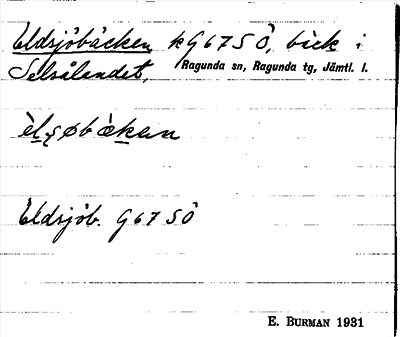 Eldsjöbäcken kG67SÖ, bäck i
Selsålandet, Ragunda sn, Ragunda tg, Jämtl. l.
Eldsjöb. G67SÖ
E. BURMAN 1931